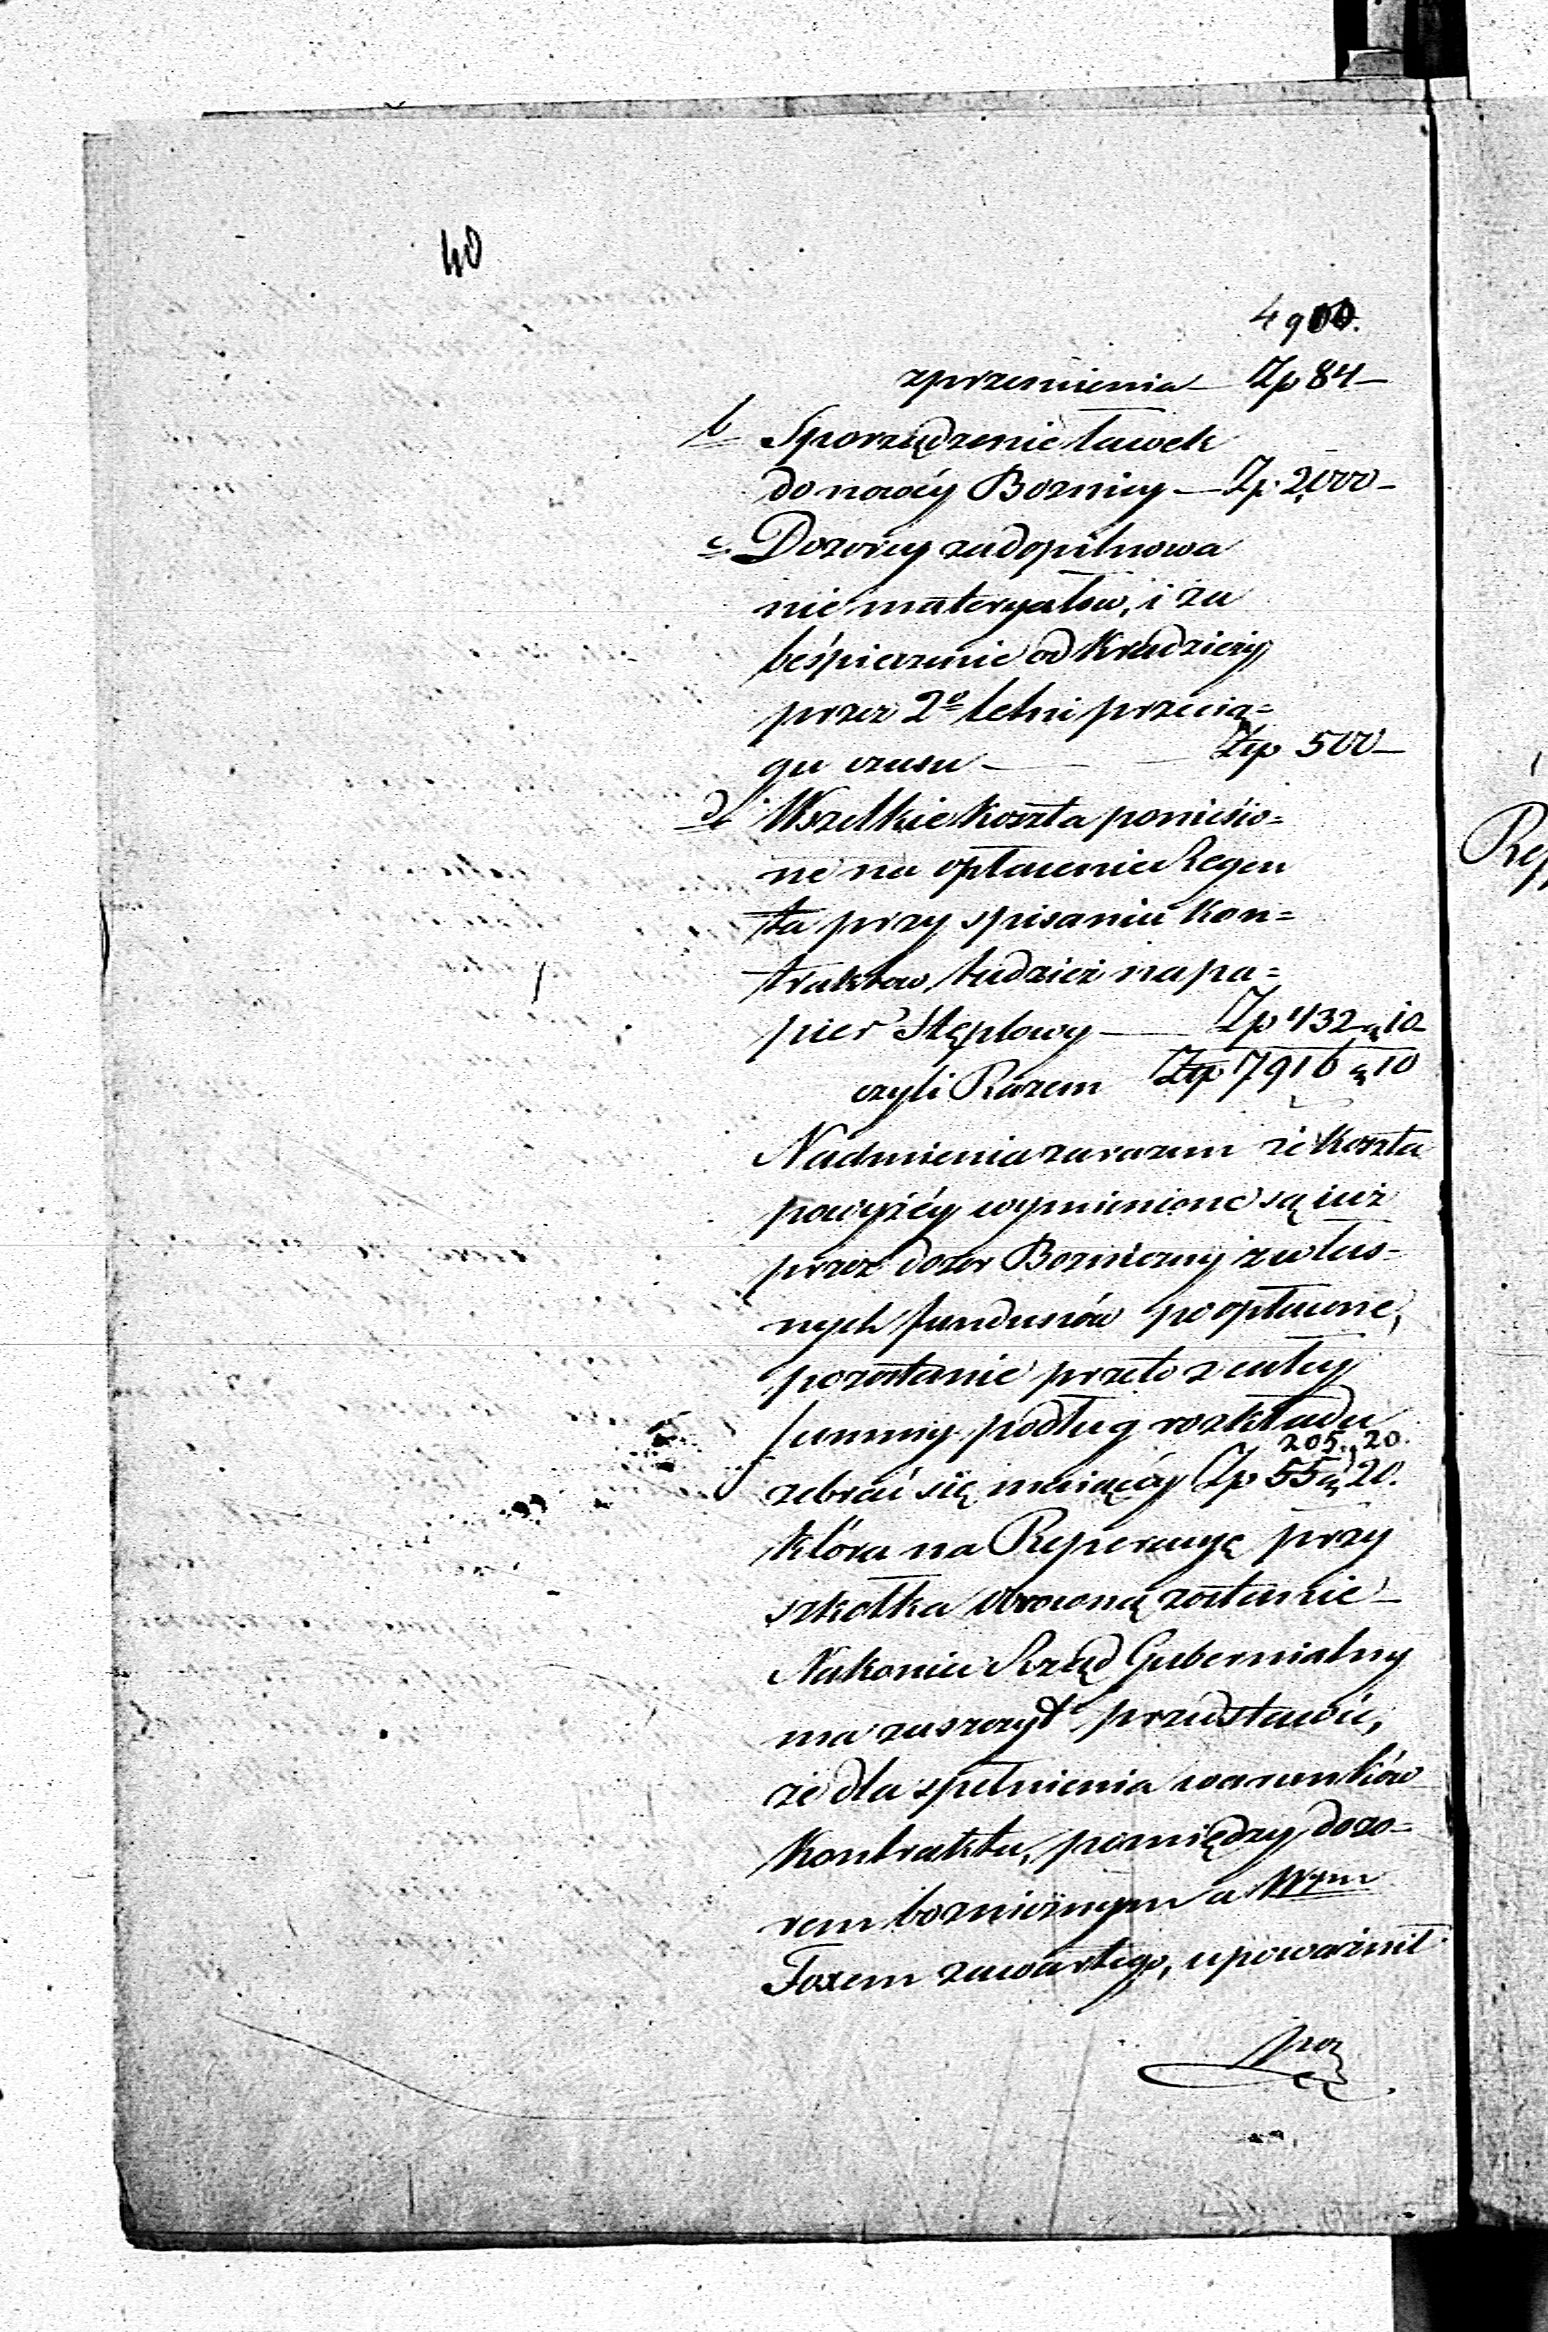 40
4900.
zprzenienia Zp 84—
b Sporządzenie ławek
do nowéy Boznicy — Zp. 2,000—
c. Dozorcy za dopilnowa
nie materyałow, i za
beśpieczenie od Kradzieży
przez 2º letni przecią=
gu czasu — Zlp 500—
d. Wszelkie koszta ponieśio=
ne na opłacenie Regen
ta przy spisaniu Kon=
traktow, tudzież na pa=
pier Stęplowy — Zp 432 g 10
czyli Razem Złp 7916 g 10
Nadmienia zarazem że Koszta
powyżéy wymienione są iuż
przez dozor Bozniczny z włas=
nych funduszów poopłacone,
pozostanie przeto z całey
summy podług rozkładu
205. 20.
zebrać się maiącéy Zp 55 g 20.
która na Reperacyę przy
szkołka obroconą zostanie—
Nakoniec Rząd Gubernialny
ma zaszczyt przedstawić,
że dla spełnienia warunków
Kontraktu, pomiędzy dozo=
rem boznicznym a Wym
Foxem zawartego, upoważnił
Rep